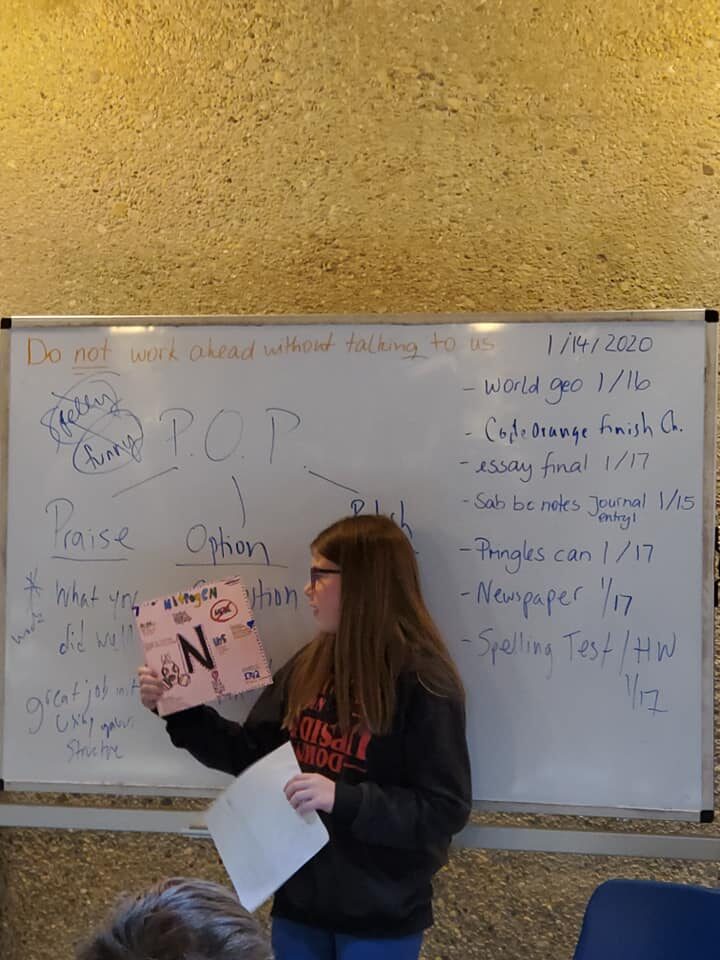 Do not work ahead without talking to us
1/14/2020
funny
P.O.P.
Praise
Option
* What you
did well
great job
using your
- World geo 1/16
- Code Orange finish Ch.
- essay final 1/17
- Sab bc notes Journal 1/15
entry1
- Pringles can 1/17
- Newspaper 1/17
- Spelling Test/HW
1/17
NitrogeN
N
UPSIDE
DOWN